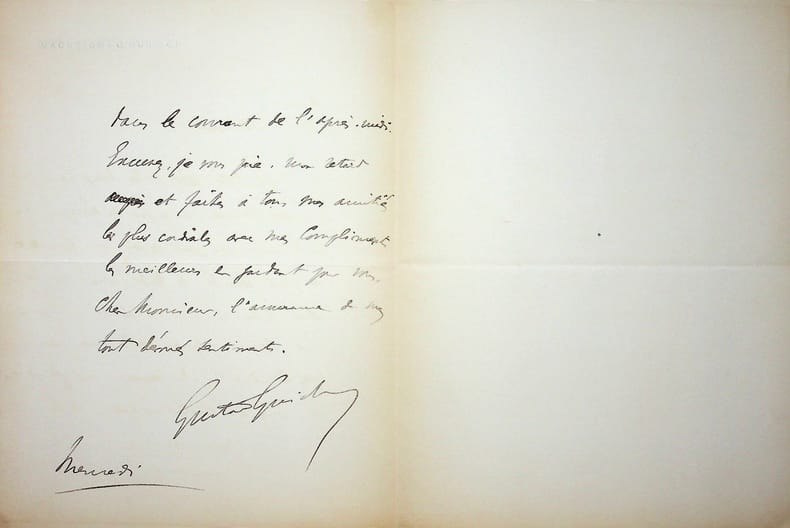 dans le courant de l'après-midi.
Excusez, je vous prie, mon retard
et faites à tous mes amitiés
les plus cordiales avec mes compliments
les meilleurs en gardant pour vous,
cher Monsieur, l'assurance de mes
tout dévoués sentiments.
Gustave
Mercredi